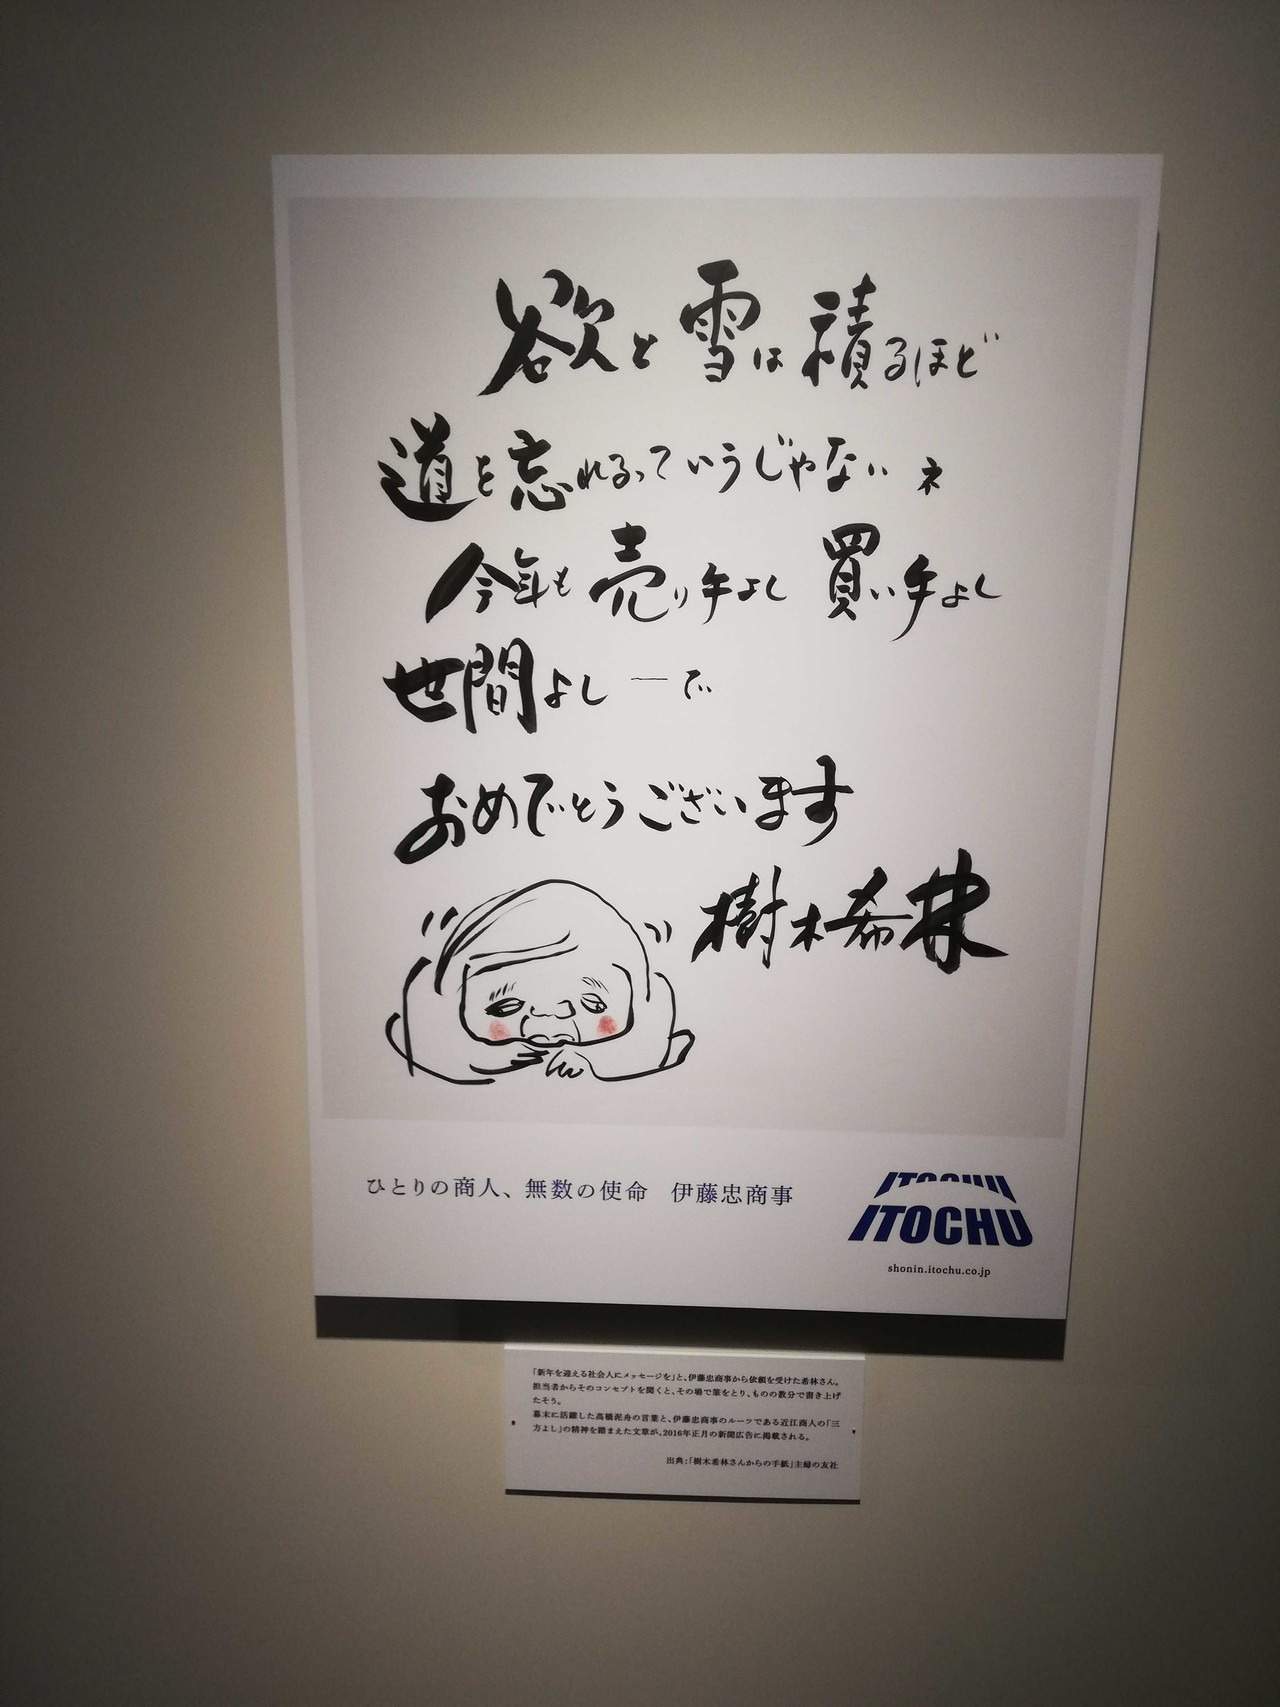 欲と雪は積るほど
道を忘れるっていうじゃない ネ
今年も売り手よし 買い手よし
世間よし ―で
おめでとうございます
樹木希林
ひとりの商人、無数の使命 伊藤忠商事
ITOCHU
ITOCHU
shonin.itochu.co.jp
「新年を迎える社会人にメッセージを」と、伊藤忠商事から依頼を受けた希林さん。
担当者からそのコンセプトを聞くと、その場で筆をとり、ものの数分で書き上げ
たそう。
幕末に活躍した高橋泥舟の言葉と、伊藤忠商事のルーツである近江商人の「三
方よし」の精神を踏まえた文章が、2016年正月の新聞広告に掲載される。
出典:「樹木希林さんからの手紙」主婦の友社